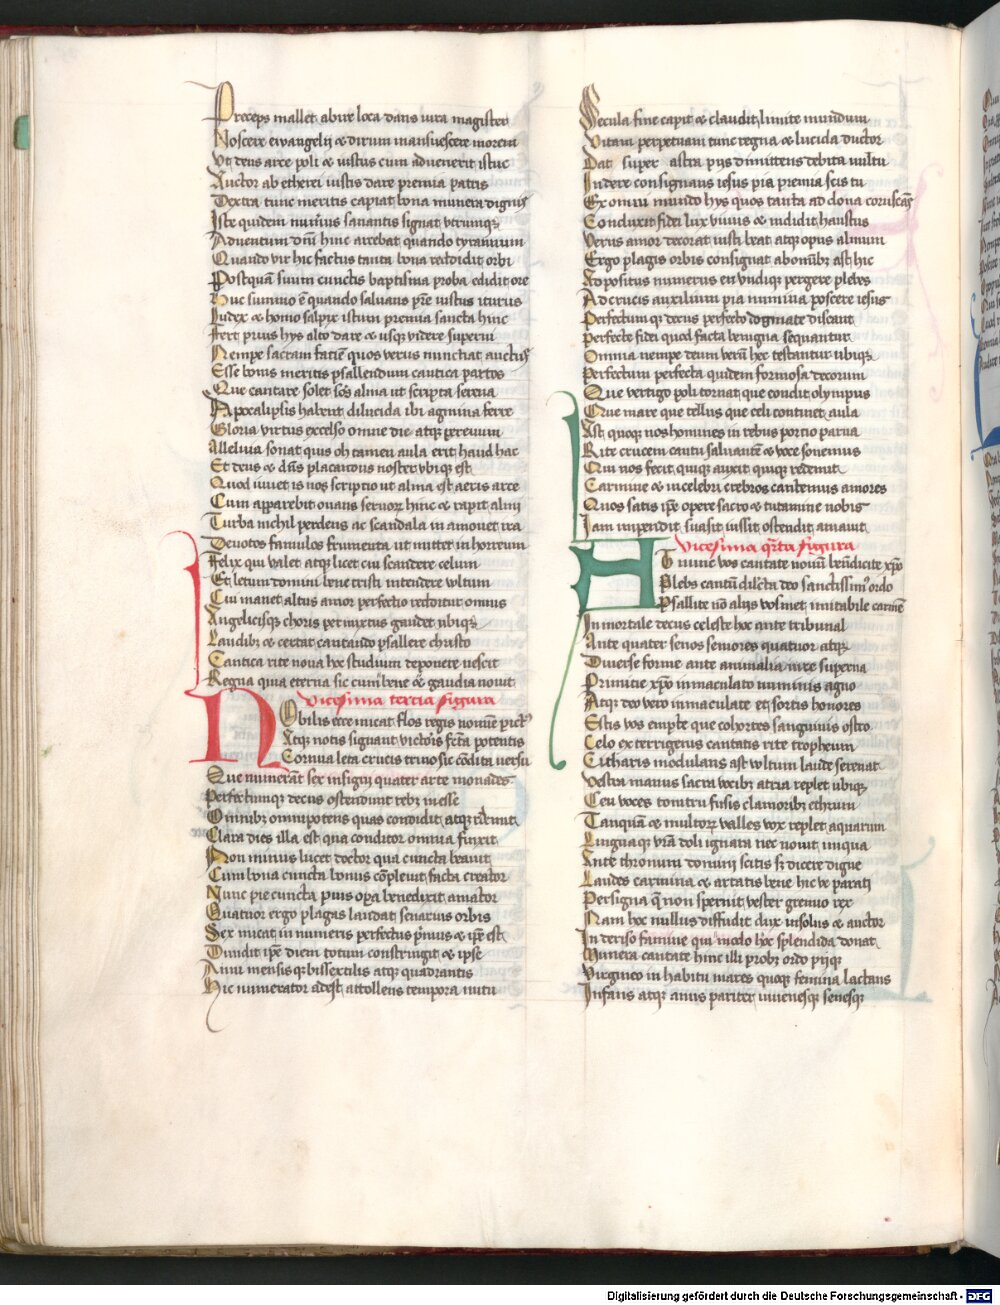 Preceps mallet abire loca dans iura magister
Noscere ewangelij et dirum mansuescere morem
Vt deus arce poli et iustus cum aduenerit istuc
Auctor ab etherei iustis dare premia patris
Dextra tunc meritis capiat bona munera dignus
Iste quidem numerus sanantis signat vtrumque
Aduentum dni hinc arcebat quando tyrannum
Quando vir hic factus tanta bona reddidit orbi
Postquam suum cunctis baptisma proba edidit ore
Huc summo est quando saluans pre iustus iturus
Iudex et homo salpix istum premia sancta hinc
Fert prius hys alto dare et usque videre superni
Nempe sacram faciem quos verus nunciat auctus
Esse bonis meritis psallendum cantica partos
Que cantare solet scos alma ut scriptura serena
Apocalipsis habent dilucida ibi agmina ferre
Gloria virtus excelso omne die atque perennum
Alleluia sonat quis oh tamen aula erit haud hac
Et deus et dns placandus noster vbique est
Quod iuuet is nos scriptio ut alma est aeris arce
Cum apparebit ouans seruorum hinc et rapit almi
Turba nichil perdens ac scandala in amouet ira
Deuotos famulos frumenta ut mittet in horreum
Felix qui valet atque licet cui scandere celum
Et letum domini bene tristi intendere vultum
Cui manet altus amor perfectio redditur omnis
Angelicisque choris permixtus gaudet ubique
Laudibus et certat cantando psallere christo
Cantica rite noua hoc studium deponere nescit
Regna quia eterna sic cum bene et gaudia nouit
Vicesima tercia figura
Nobilis ecce micat flos regis nomine pictus
Atque notis signant victoris facta potentis
Cornua leta crucis trino sic condita versu
Que numerant sex insigni quater arte monades
Perfectumque decus ostendunt rebus inesse
Omnibus omnipotens quas condidit atque redemit
Clara dies illa est qua conditor omnia finxit
Non minus lucet doctor qua cuncta beauit
Cum bona cuncta bonus compleuit facta creator
Nunc pie cuncta pius opera benedixit amator
Quatuor ergo plagas laudat senarius orbis
Sex micat in numeris perfectus primus et ipse est
Diuidit ipse diem totum constringit et ipse
Anni mensisque bissextilis atque quadrantis
Hic numerator adest attollens tempora nutu
Secula fine capit et claudit limite mundum
Vitam perpetuam tunc regna et lucida ductor
Dat super astra pijs dimittens debita vultu
Iudere consignans iesus pia premia scis tu
Ex omni mundo hys quos tanta ad dona coruscans
Conduxit fidei lux viuus et indidit haustus
Verus amor decorat iusti beat atque opus almum
Ergo plagis orbis consignat ab omnibus ast hic
Adpositus numerus en vndique pergere plebes
Ad crucis auxilium pia numina poscere iesus
Perfectum que decus perfecto dogmate discant
Perfecte fidei quod facta benigna sequantur
Omnia nempe deum verum hec testantur ubique
Perfectum perfecta quidem formosa decorum
Que vertigo poli tornat que condit olympus
Que mare que tellus que celi continet aula
Ast quoque nos homines in rebus portio parua
Rite crucem cantu saluantem et voce sonemus
Qui nos fecit quique auxit quique redemit
Carmine et in celebri crebros cantemus amores
Quos satis ipse opere sacro et tutamine nobis
Iam impendit suasit iussit ostendit amauit
Vicesima qrta figura
HEt nunc vos cantate nouum benedicite xpo
Plebs cantum dilecta deo sanctissimus ordo
Psallite non alijs vosmet imitabile carmen
In mortale decus celeste hoc ante tribunal
Ante quater senos seniores quatuor atque
Diuerse forme ante animalia iure superna
Primitie xpo immaculato numinis agno
Atque deo vero inmaculate et sortis honores
Estis vos empte que cohortes sanguinis ostro
Celo ex terrigenis cantatis rite tropheum
Citharis modulans ast vultum laude serenat
Vestra manus sacra verbis atria replet ubique
Ceu voces tonitru fusis clamoribus ethram
Tanquam et multorum valles vox replet aquarum
Linguaque viam doli ignara nec nouit iniqua
Ante thronum domini scitis sed dicere digne
Laudes carmina et artatis bene hic ve parati
Persigna que non spernit vester gremio rex
Nam hoc nullus diffudit dux insolus et auctor
In deriso famine qui modo hoc splendida donat
Munera cantate hinc illi probus ordo pijque
Virgineo in habitu mares quoque femina lactans
Infans atque anus pariter iuuenesque senesque
Digitalisierung gefördert durch die Deutsche Forschungsgemeinschaft - DFG